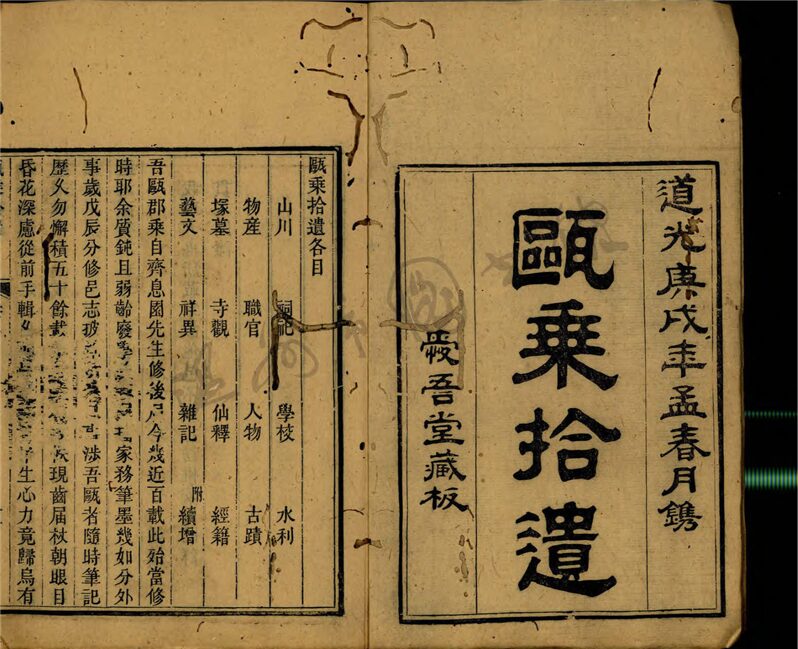 道光庚戌年孟春月鐫
甌乘拾遺
愛吾堂藏板
甌乘拾遺各目
山川 祠祀 學校 水利
物産 職官 人物 古蹟
塚墓 寺觀 仙釋 經籍
藝文 祥異 雜記 附續增
吾甌郡乘自齊息園先生修後迄今幾近百載此殆當修
時耶余質鈍且弱齡廢 家務筆墨幾如分外
事歲戊辰分修邑志 涉吾甌者隨時筆記
歷久勿懈積五十餘載 現齒届杖朝眼目
昏花深慮從前手輯 生心力竟歸烏有